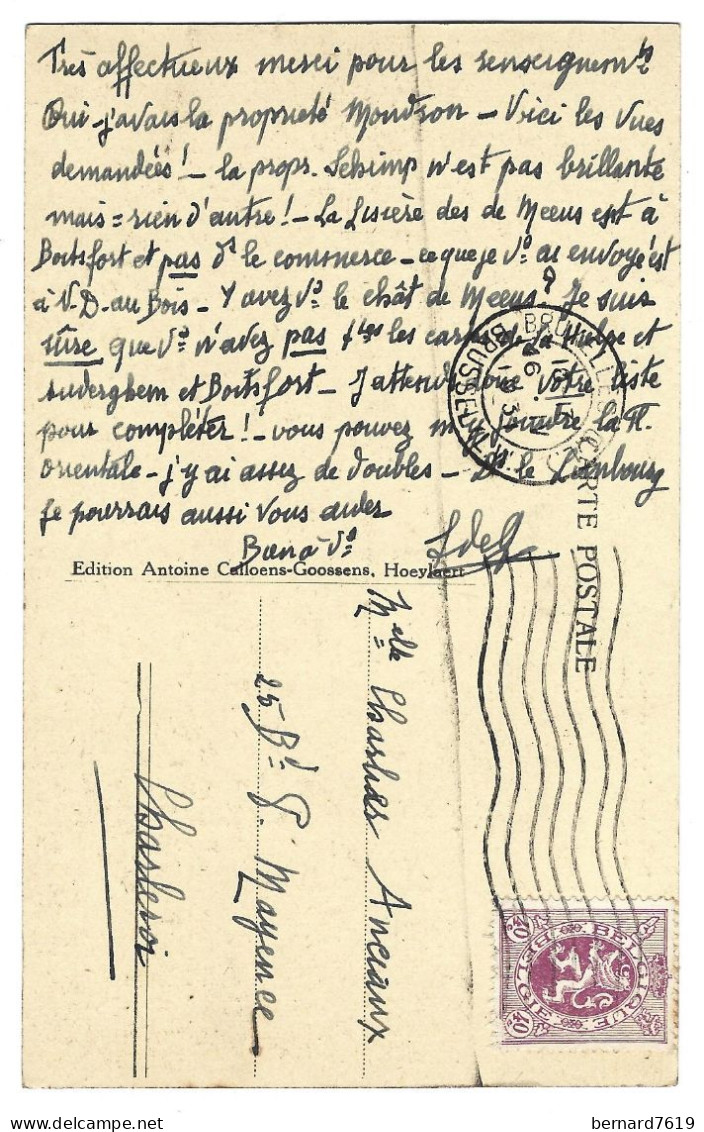 Très affectueux merci pour les renseignemts
Oui - j'avais la propriété Mondron - Voici les vues
demandées! - la propr. Schimp n'est pas brillante
mais = rien d'autre! - La Lisière des de Meeus est à
Boitsfort et pas ds le commerce - ce que je vs ai envoyé est
à N.D. au Bois - Y avez vs le chât de Meeus? Je suis
sûre que vs n'avez pas ttes les cartes de La Hulpe et
Auderghem et Boitsfort - J'attends donc votre liste
pour compléter! - vous pouvez m'y joindre la Fl.
Orientale - j'y ai assez de doubles - De le Limbourg
je pourrais aussi vous aider
Bien à vs
Edition Antoine Calloens-Goossens, Hoeylaert
CARTE POSTALE
Melle Charles Anciaux
25 Bd P. Mayence
Charleroi
BRUXELLES
BRUSSEL
BELGIQUE
BELGIË
40
40
bernard7619